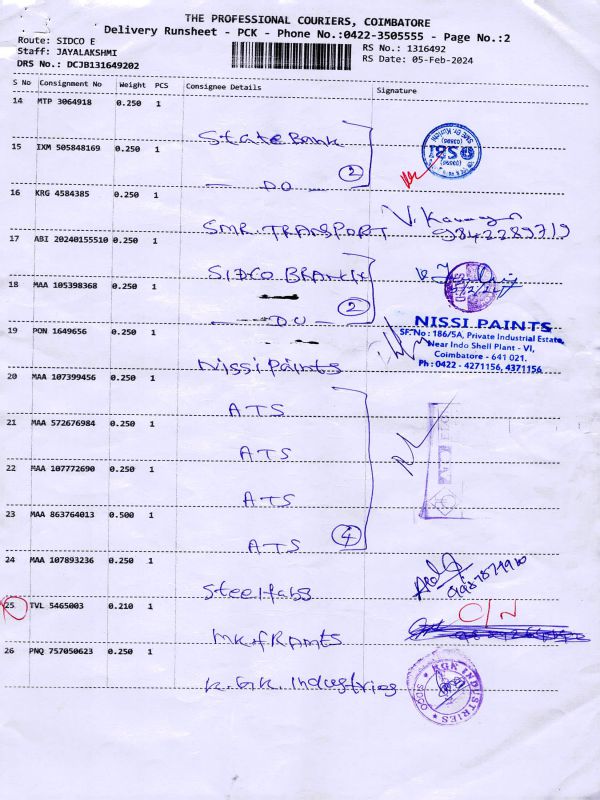 THE PROFESSIONAL COURIERS, COIMBATORE
Delivery Runsheet - PCK - Phone No.:0422-3505555 - Page No.:2
Route: SIDCO E
Staff: JAYALAKSHMI
DRS No.: DCJB131649202
RS No.: 1316492
RS Date: 05-Feb-2024
S No Consignment No Weight PCS Consignee Details Signature
14 MTP 3064918 0.250 1
State Bank
15 IXM 505848169 0.250 1
DO
2
16 KRG 4584385 0.250 1
SMR. TRANSPORT
9842289719
17 ABI 20240155510 0.250 1
SIDCO BRANCH
18 MAA 105398368 0.250 1
DO
2
19 PON 1649656 0.250 1
Nissi Paints
NISSI PAINTS
SF.No : 186/5A, Private Industrial Estate,
Near Indo Shell Plant - VI,
Coimbatore - 641 021.
Ph : 0422 - 4271156, 4371156
20 MAA 107399456 0.250 1
ATS
21 MAA 572676984 0.250 1
ATS
22 MAA 107772690 0.250 1
ATS
23 MAA 863764013 0.500 1
ATS
4
24 MAA 107893236 0.250 1
Steelfabs
25 TVL 5465003 0.210 1
O/N
26 PNQ 757050623 0.250 1
K.G.K. Industries
KGK INDUSTRIES
SIDCO